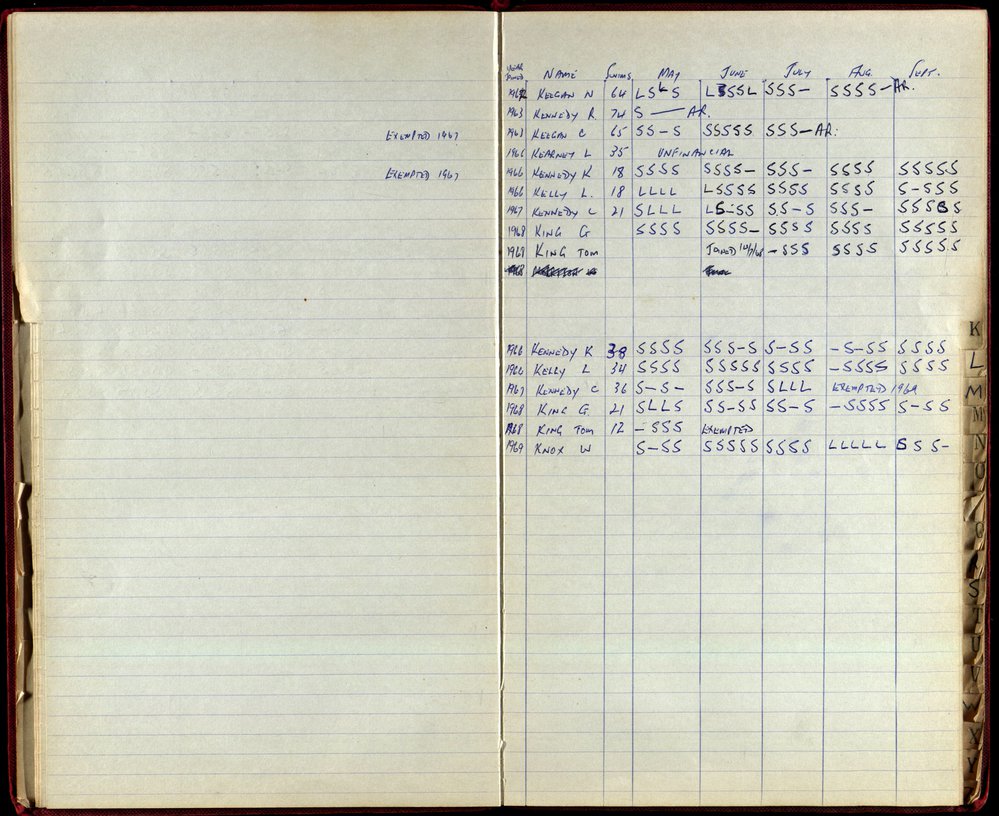 EXEMPTED 1967
EXEMPTED 1967
YEAR JOINED NAME SWIMS MAY JUNE JULY AUG. SEPT.
1962 KEEGAN N 64 L S L S L S S S L S S S – S S S S – AR.
1963 KENNEDY R. 74 S — AR.
1963 KEEGAN C 65 S S – S S S S S S S S S – AR.
1966 KEARNEY L 35 UNFINANCIAL
1966 KENNEDY K 18 S S S S S S S S – S S S – S S S S S S S S S
1966 KELLY L. 18 L L L L L S S S S S S S S S S S S S – S S S
1967 KENNEDY C 21 S L L L L S – S S S S – S S S S – S S S S S
1968 KING G S S S S S S S S – S S S S S S S S S S S S S
1968 KING TOM JOINED – S S S S S S S S S S S S
1968
K
L
M
M
N
O
Q
R
S
T
U
V
W
X
Y
1966 KENNEDY K 38 S S S S S S S – S S – S S – S – S S S S S S
1966 KELLY L 34 S S S S S S S S S S S S S – S S S S S S S S
1967 KENNEDY C 36 S – S – S S S – S S L L L EXEMPTED 1969
1968 KING G 21 S L L S S S – S S S S – S – S S S S S – S S
1968 KING TOM 12 – S S S EXEMPTED
1969 KNOX W S – S S S S S S S S S S S L L L L L S S S –